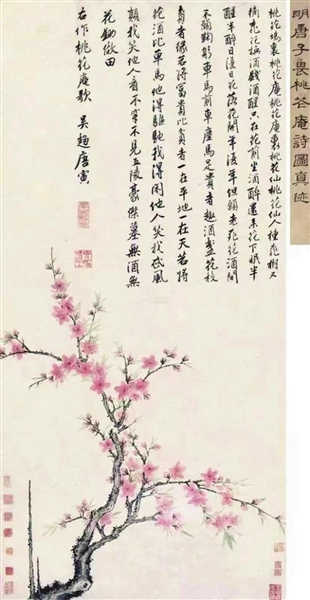 明唐子畏桃花庵詩圖真迹
桃花塢裏桃花庵桃花庵裏桃花仙桃花仙人種桃樹又
摘桃花換酒錢酒醒只在花前坐酒醉還來花下眠半
醒半醉日復日花落花開年復年但願老死花酒間
不願鞠躬車馬前車塵馬足貴者趣酒盞花枝
貧者緣若將富貴比貧者一在平地一在天若將
花酒比車馬他得驅馳我得閑他人笑我忒風
顛我笑他人看不穿不見五陵豪傑墓無酒無
花鋤做田
右作桃花庵歌 吳趨唐寅